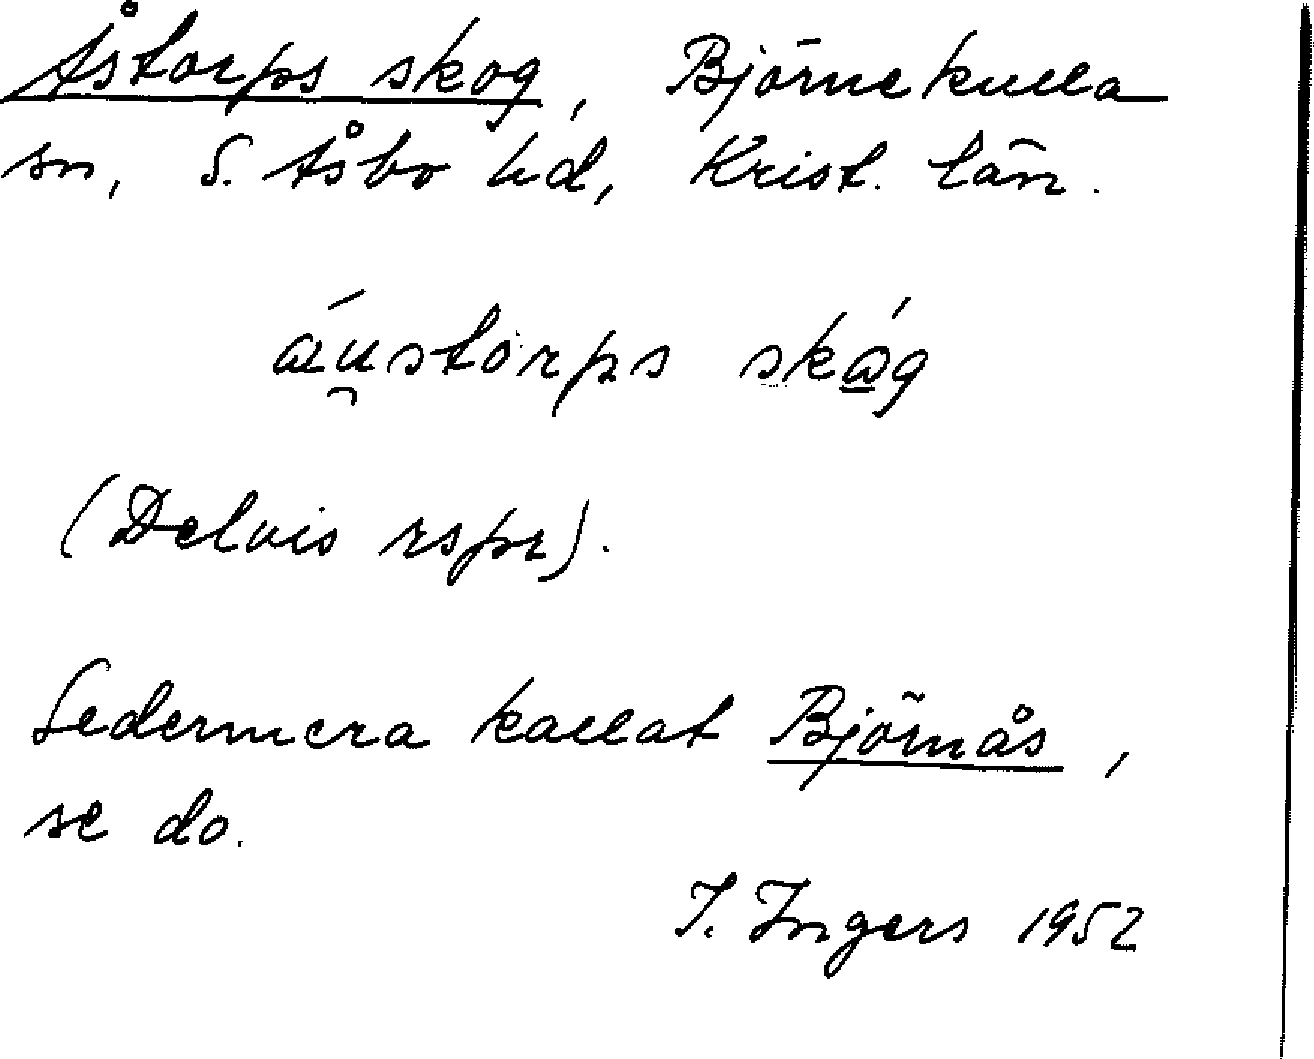 Åstorps skog, Björnekulla
sn, S. Åsbo hd, Krist. län.
áu̯storps skóg
(Delvis rspr).
Sedermera kallat Björnås,
se do.
I. Ingers 1952